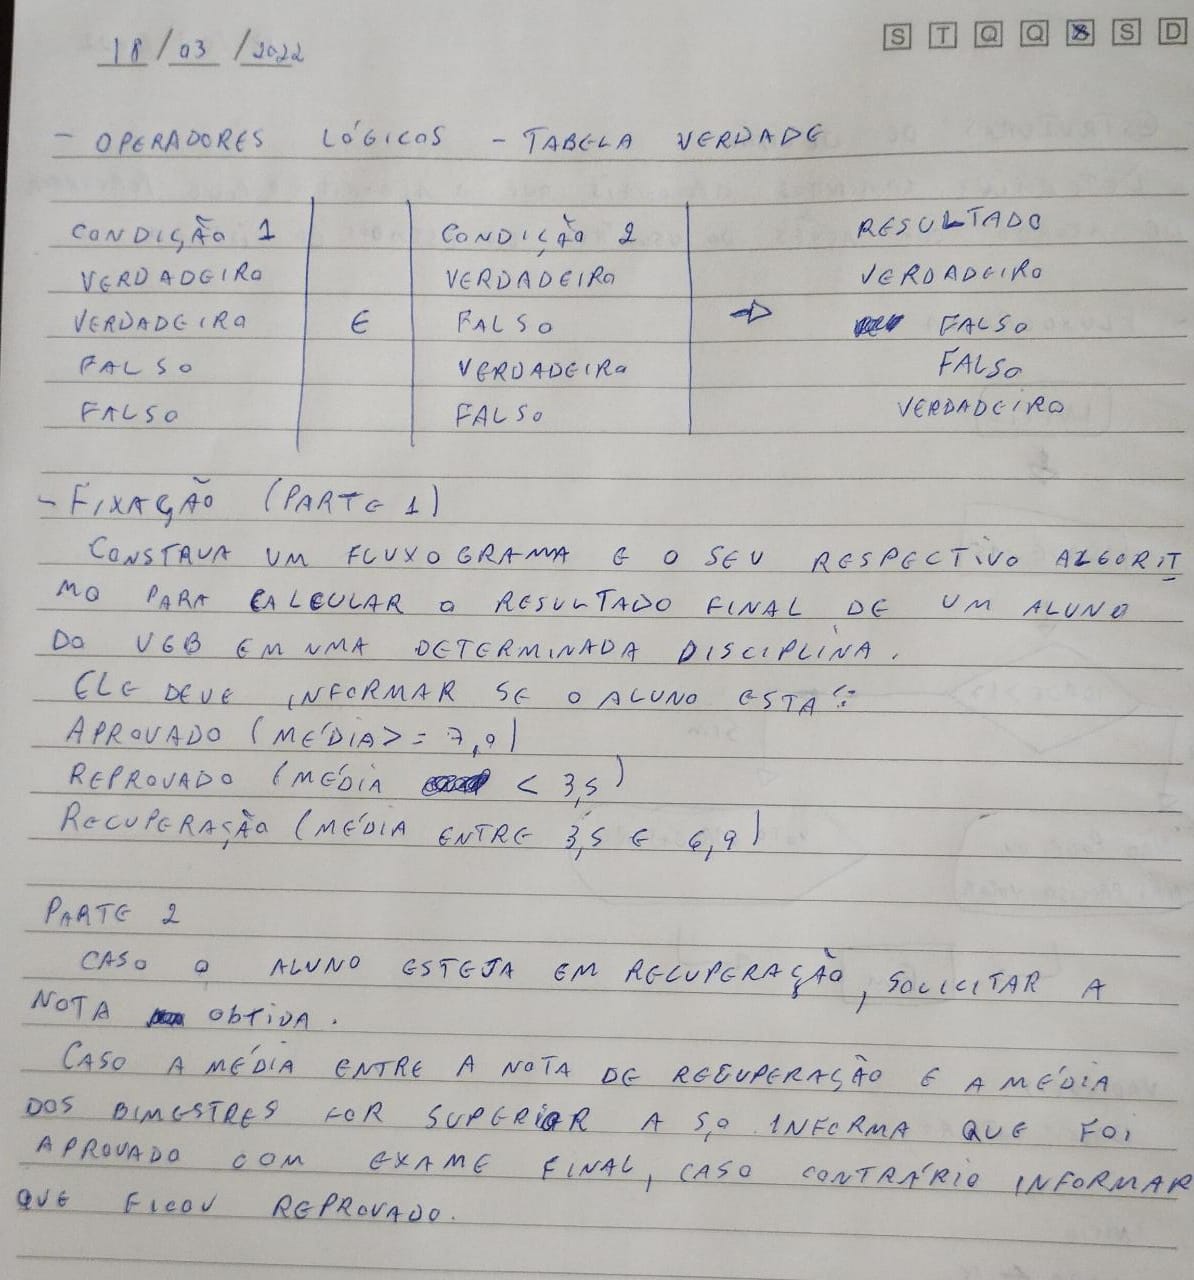 18/03/2022 S T Q Q S S D
- OPERADORES LÓGICOS - TABELA VERDADE
CONDIÇÃO 1 CONDIÇÃO 2 RESULTADO
VERDADEIRO VERDADEIRO VERDADEIRO
VERDADEIRO E FALSO ⇒ FALSO
FALSO VERDADEIRO FALSO
FALSO FALSO VERDADEIRO
- FIXAÇÃO (PARTE 1)
CONSTRUA UM FLUXOGRAMA E O SEU RESPECTIVO ALGORIT
MO PARA CALCULAR O RESULTADO FINAL DE UM ALUNO
DO EM UMA DETERMINADA DISCIPLINA.
ELE DEVE INFORMAR SE O ALUNO ESTA:
APROVADO (MÉDIA >= 7,0)
REPROVADO (MÉDIA < 3,5)
RECUPERAÇÃO (MÉDIA ENTRE 3,5 E 6,9)
PARTE 2
CASO O ALUNO ESTEJA EM RECUPERAÇÃO, SOLICITAR A
NOTA OBTIDA.
CASO A MÉDIA ENTRE A NOTA DE RECUPERAÇÃO E A MÉDIA
DOS BIMESTRES FOR SUPERIOR A 5,0 INFORMA QUE FOI
APROVADO COM EXAME FINAL, CASO CONTRÁRIO INFORMAR
QUE FICOU REPROVADO.